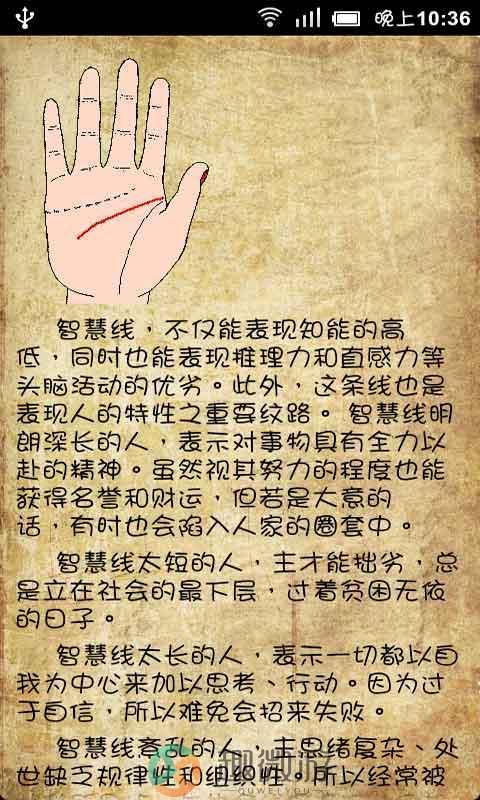 晚上10:36
智慧线，不仅能表现知能的高
低，同时也能表现推理力和直感力等
头脑活动的优劣。此外，这条线也是
表现人的特性之重要纹路。 智慧线明
朗深长的人，表示对事物具有全力以
赴的精神。虽然视其努力的程度也能
获得名誉和财运，但若是大意的
话，有时也会陷入人家的圈套中。
智慧线太短的人，主才能拙劣，总
是立在社会的最下层，过着贫困无依
的日子。
智慧线太长的人，表示一切都以自
我为中心来加以思考、行动。因为过
于自信，所以难免会招来失败。
智慧线紊乱的人，主思绪复杂、处
世缺乏规律性和组织性。所以经常被
聊微游
OUWELYOU.COM